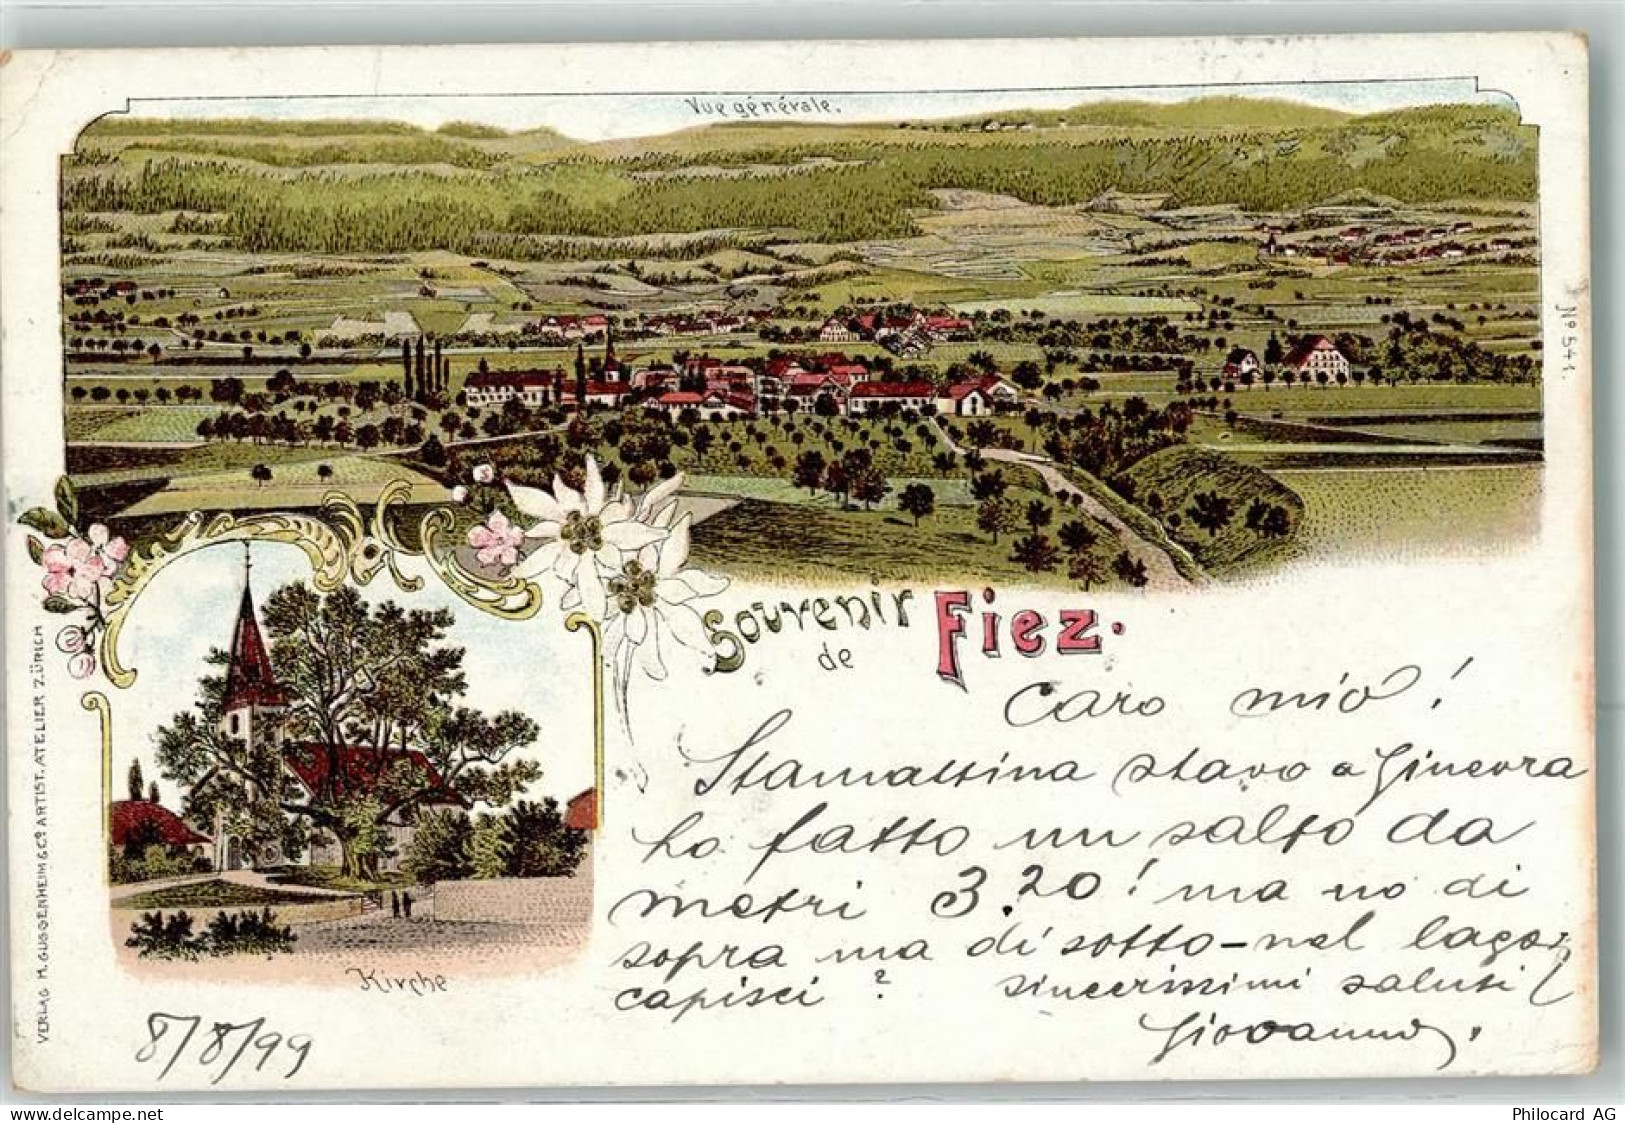 Vue générale.
Nº 541.
Souvenir
de
Fiez.
Caro mio!
Stamattina stavo a Ginevra
ho fatto un salto da
metri 3.20! ma no di
sopra ma di sotto - nel lago,
capisci? sincerissimi saluti
Giovanni.
Kirche
8/8/99
VERLAG H. GUGGENHEIM & Cº ARTIST. ATELIER ZÜRICH
delcampe.net
Philocard AG